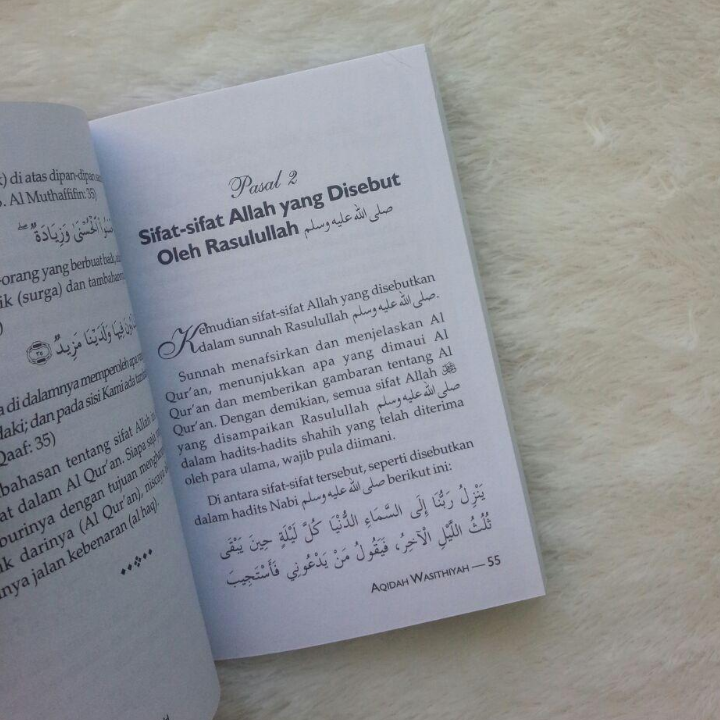 di atas dipan-dipan
Al Muthaffifin: 35)
الْحُسْنَىٰ وَزِيَادَةٌ
orang yang berbuat baik,
ik (surga) dan tambahan
فِيهَا وَلَدَيْنَا مَزِيدٌ
di dalamnya memperoleh apa
laki; dan pada sisi Kami ada
Qaaf: 35)
bahasan tentang sifat Allah
at dalam Al Qur'an. Siapa saja
purinya dengan tujuan
ik darinya (Al Qur'an), niscaya
nya jalan kebenaran (al haq).
Pasal 2
Sifat-sifat Allah yang Disebut
Oleh Rasulullah صلى الله عليه وسلم
Kemudian sifat-sifat Allah yang disebutkan
dalam sunnah Rasulullah صلى الله عليه وسلم.
Sunnah menafsirkan dan menjelaskan Al
Qur'an, menunjukkan apa yang dimaui Al
Qur'an dan memberikan gambaran tentang Al
Qur'an. Dengan demikian, semua sifat Allah ﷻ
yang disampaikan Rasulullah صلى الله عليه وسلم
dalam hadits-hadits shahih yang telah diterima
oleh para ulama, wajib pula diimani.
Di antara sifat-sifat tersebut, seperti disebutkan
dalam hadits Nabi صلى الله عليه وسلم berikut ini:
يَنْزِلُ رَبُّنَا إِلَى السَّمَاءِ الدُّنْيَا كُلَّ لَيْلَةٍ حِينَ يَبْقَى
ثُلُثُ اللَّيْلِ الْآخِرُ، فَيَقُولُ مَنْ يَدْعُونِي فَأَسْتَجِيبَ
AQIDAH WASITHIYAH — 55